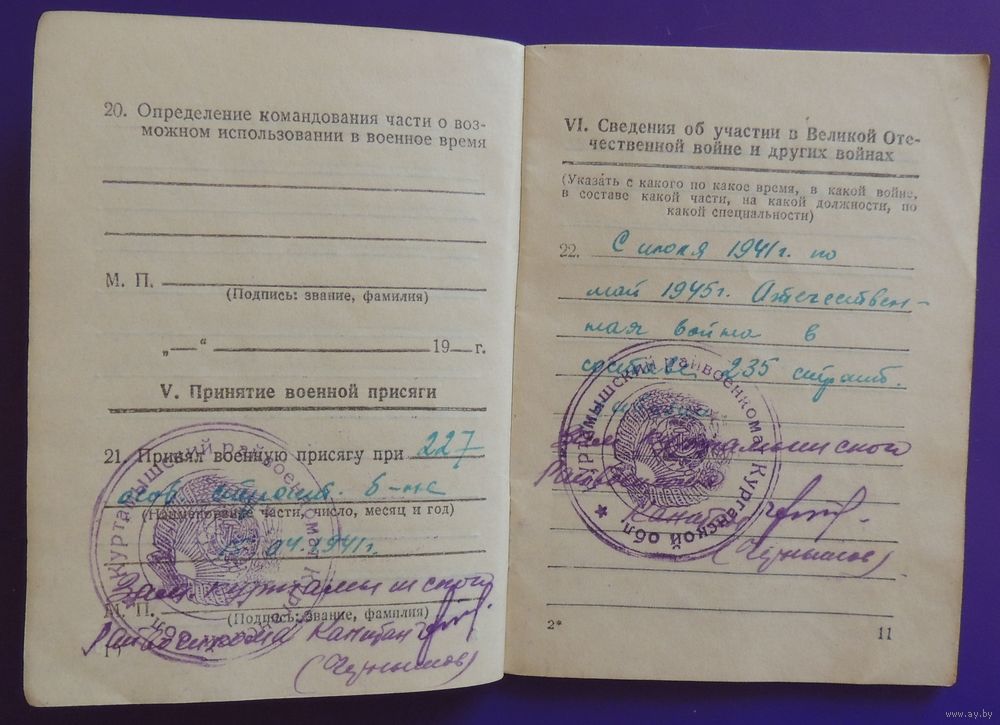 20. Определение командования части о воз-
можном использовании в военное время
М. П.
(Подпись: звание, фамилия)
„—“ 19 г.
V. Принятие военной присяги
21. Принял военную присягу при 227
особ. строит. б-не
(Наименование части, число, месяц и год)
04.1941г.
Зам. Куртамышского
М. П.
(Подпись: звание, фамилия)
Райвоенкома Капитан
(Чернышов)
Куртамышский Райвоенкомат Курганской обл.
VI. Сведения об участии в Великой Оте-
чественной войне и других войнах
(Указать с какого по какое время, в какой войне,
в составе какой части, на какой должности, по
какой специальности)
22. С июля 1941г. по
май 1945г. Отечествен-
ная война в
составе 235 строит.
Зам. Куртамышского
Райвоенкома
Капитан
(Чернышов)
Куртамышский Райвоенкомат Курганской обл.
2*
11
www.ay.by